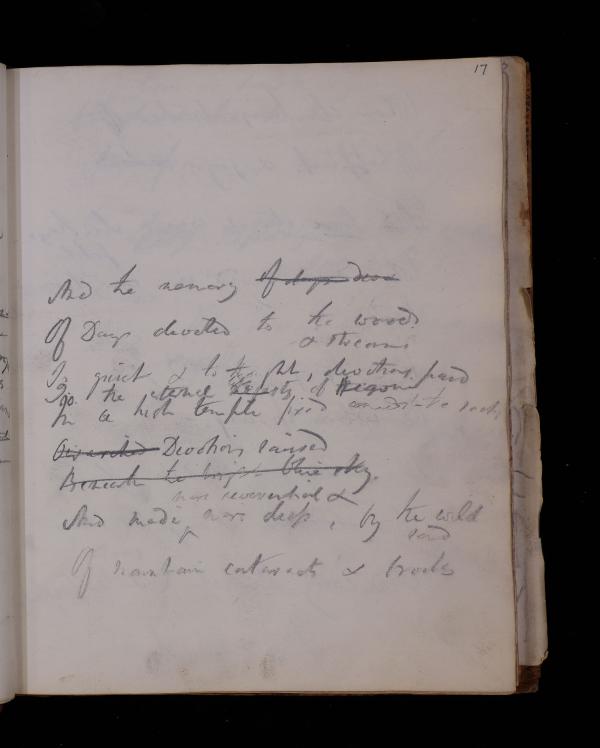 17
And the memory of days devo
Of Days devoted to the woods
& streams
To quiet & to thought, devotions paid
To the eternal of
In a high temple amidst the rocks
Devotions raised
Beneath the bright blue sky.
more reverential &
And made more deep, by the wild
sound
Of mountain cataracts & brooks